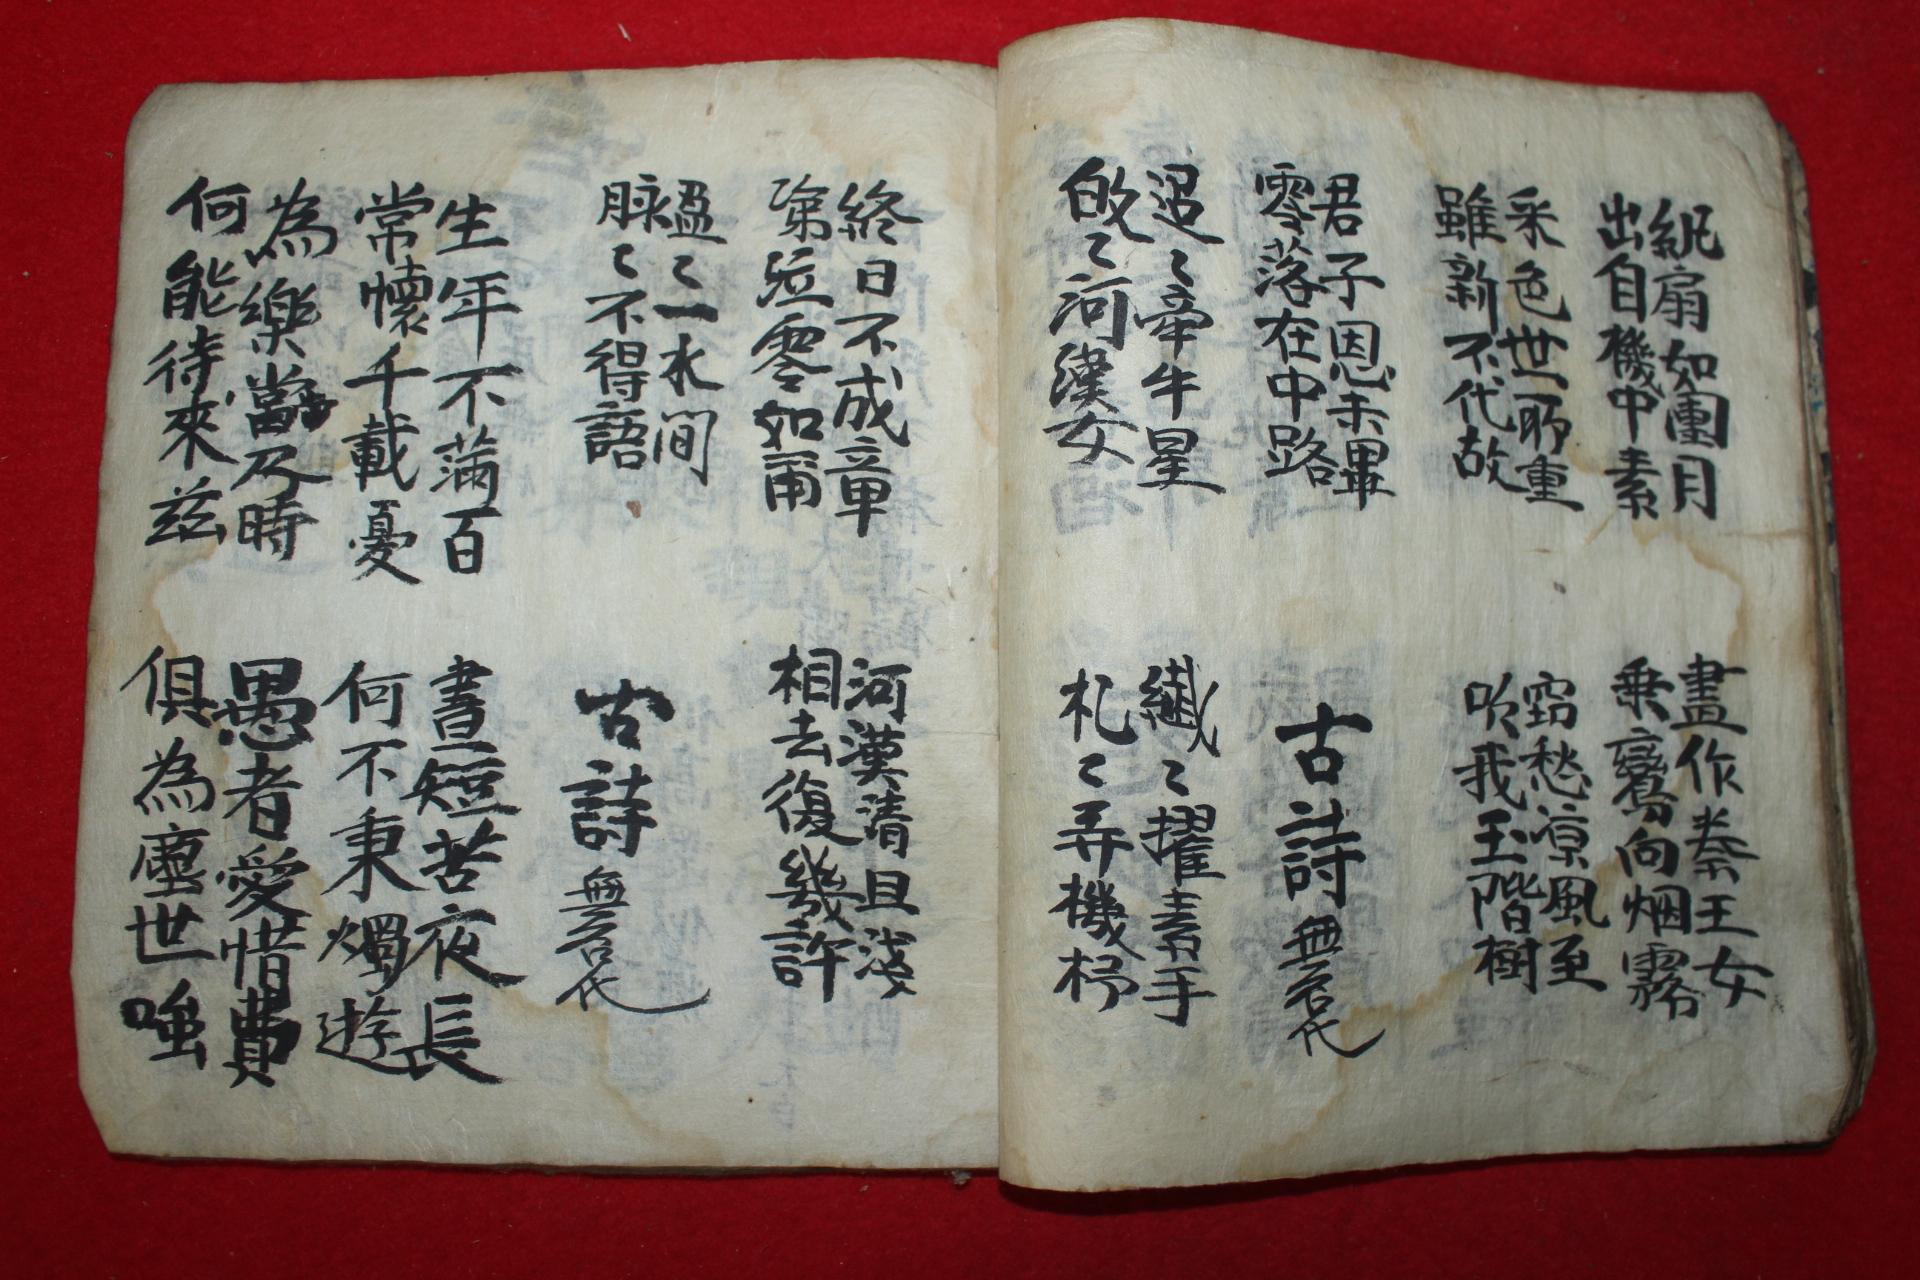 紈扇如團月
出自機中素
畫作秦王女
乗鸞向烟霧
采色世所重
雖新不代故
窃愁凉風至
吹我玉階樹
君子恩未畢
零落在中路
古詩 無名代
迢〻牽牛星
皎〻河漢女
纖〻擢素手
札〻弄機杼
終日不成章
第泣零如雨
河漢清且淺
相去復幾許
盈〻一水間
脉〻不得語
古詩 無名代
生年不滿百
常懷千載憂
晝短苦夜長
何不秉燭遊
為樂當及時
何能待來茲
愚者愛惜費
俱為塵世嗤